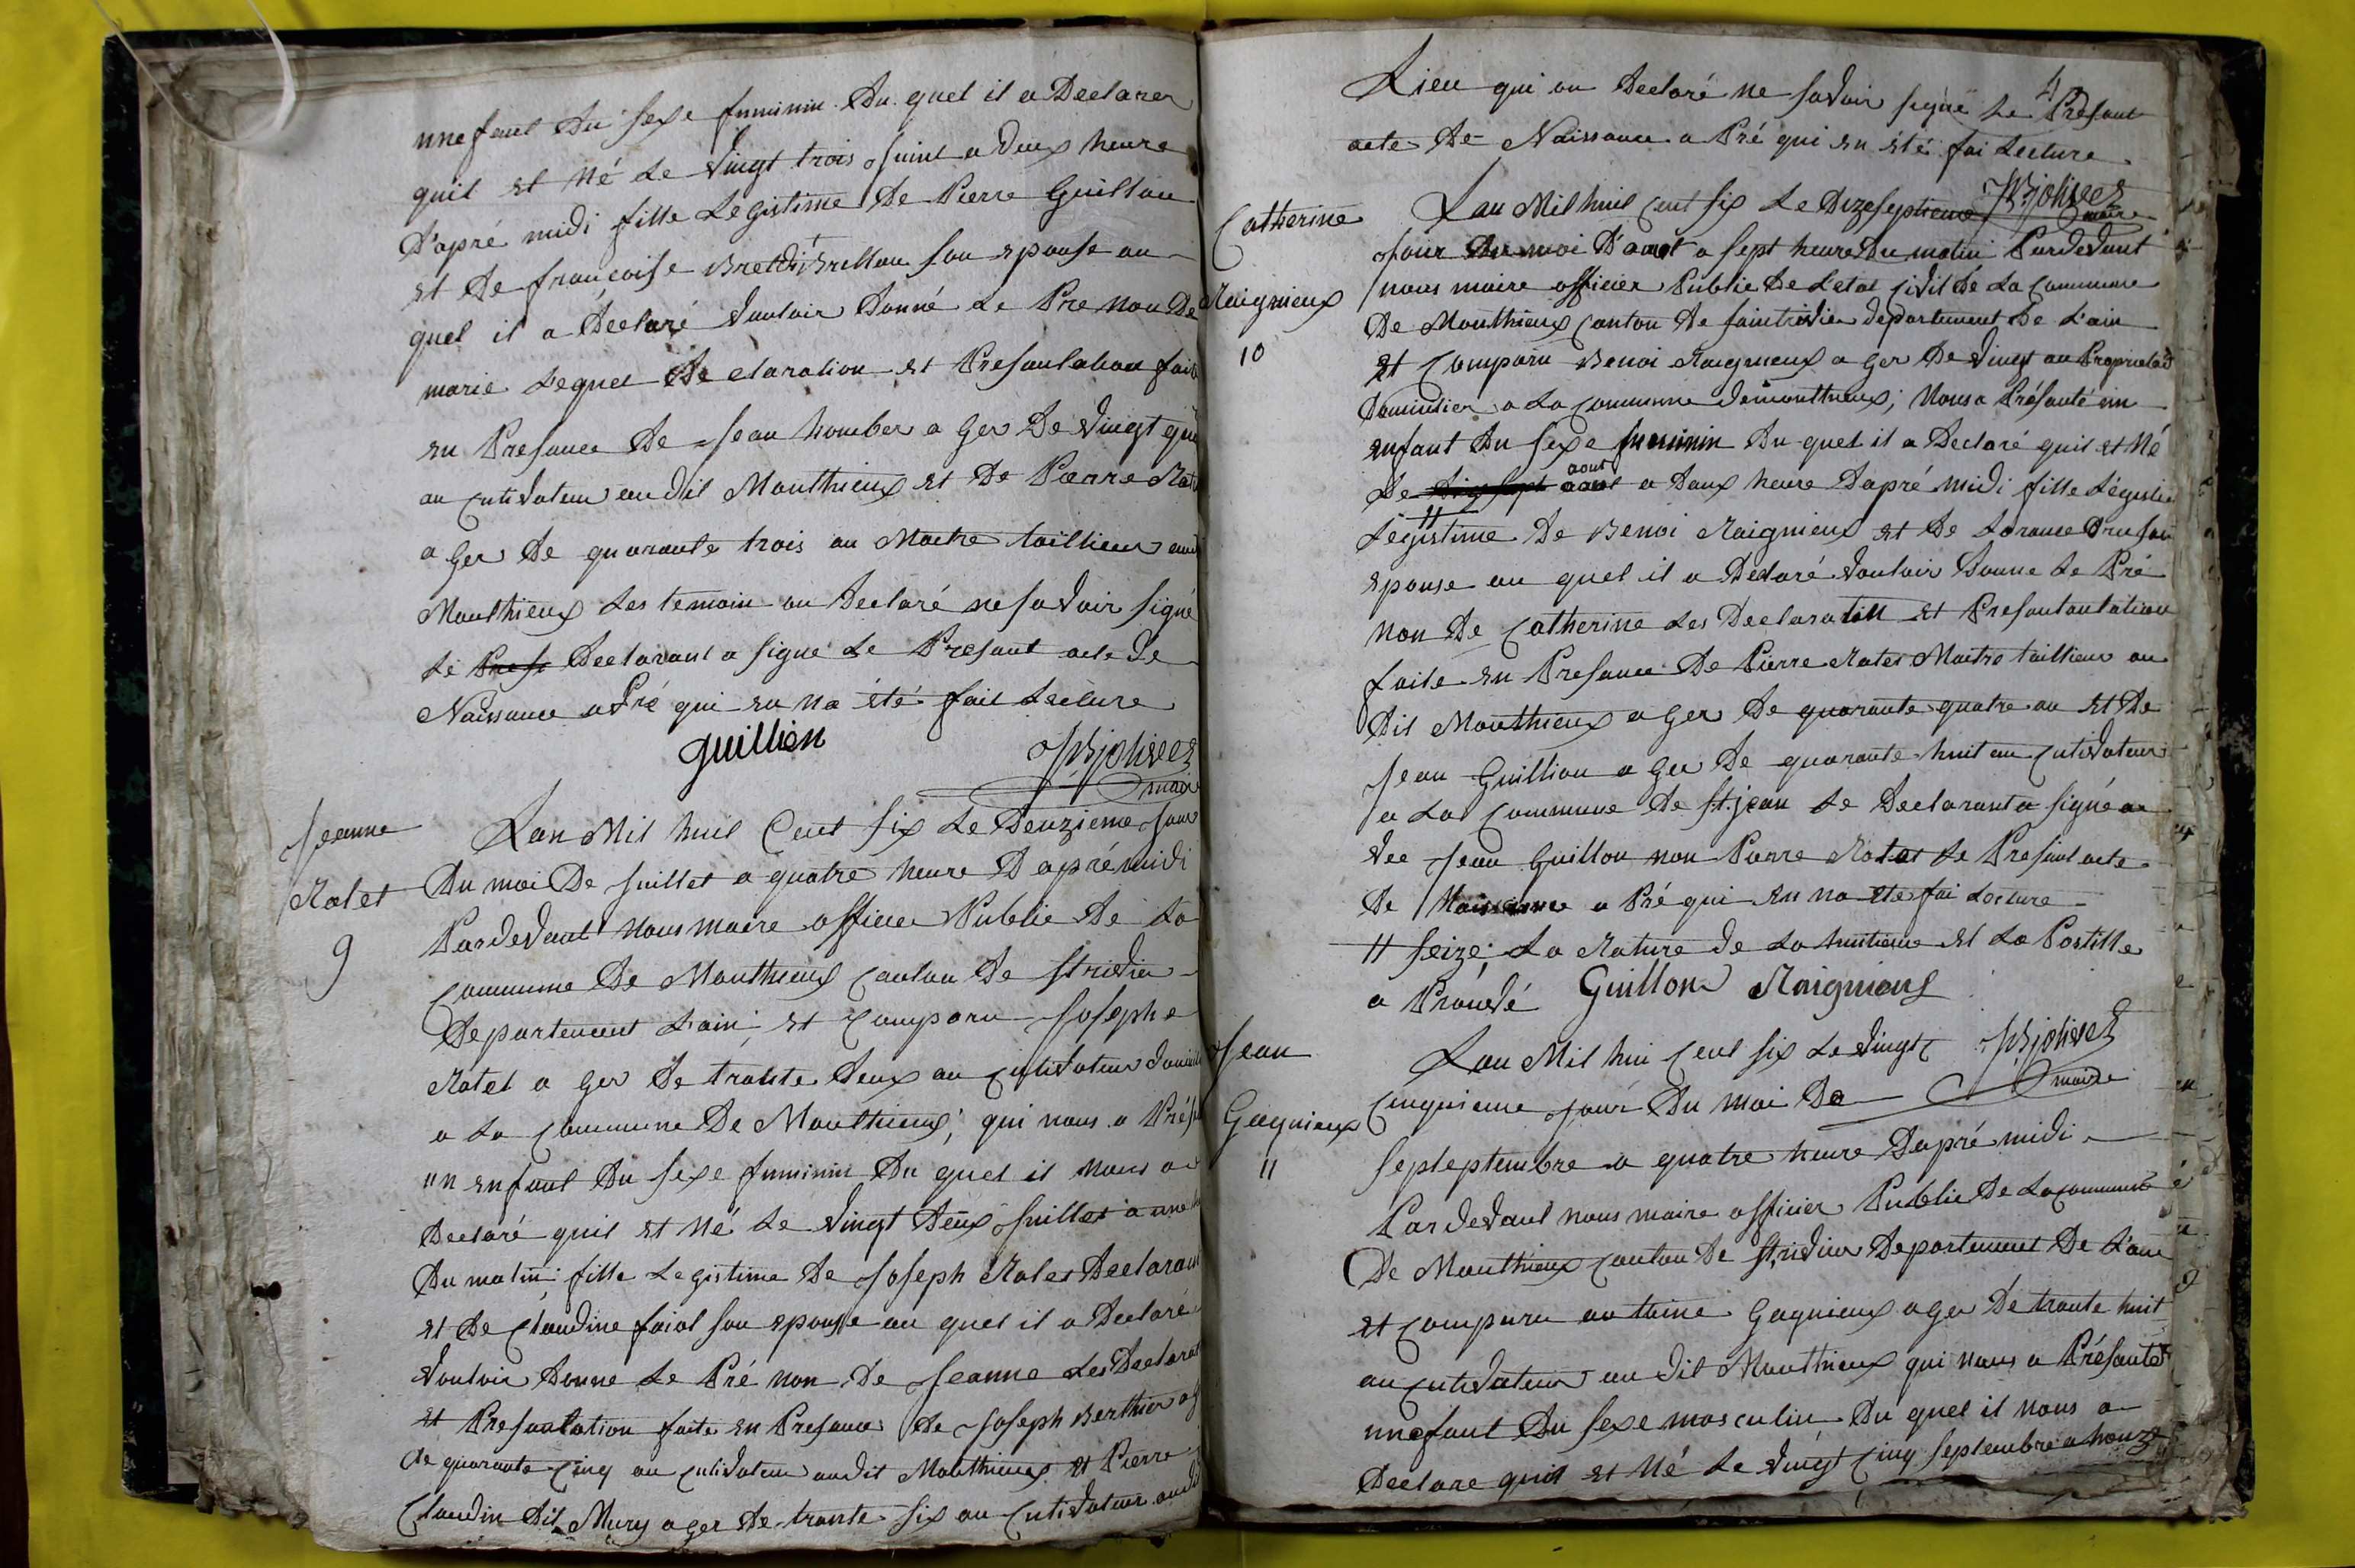 unnefant du sexe feminin du quel il a Declarer
quil et Né Le vingt trois Juint a deux heure
d'apré midi fille Legistime De Pierre Guillon
et de francoise Bretdit Brellou son epouse au
quel il a Déclaré vouloir Donné Le Prenon De
marie Lequel declaration et Presantation fait
en Presance de Jean homber a Ger De vingt
an cutivateur audit Monthieux et De Pierre
a Ger De quarante trois an Maitre taillieur
Monthieux Les temoin on Declaré ne savoir signé
Le Declarant a signé Le Presant acte de
Naissance a Pré qui en na été fait Lecture
guillion JBjolivet
maire
Jeanne
Ratet
9
Lan Mil huit Cent six Le Deuzieme Jour
Du moi De Juillet a quatre heure D'apré midi
Pardevant Nous maire officier Public De La
Commune De Monthieux Canton De St trivier
Departement L'ain, et Comparu Josephe
Ratet a Ger De trante deux an Cutivateur
a La Commune De Monthieux, qui nous a
un enfant Du sexe feminin Du quel il nous a
Declaré quil et Né Le vingt deux Juillet a une
Du matin; fille Legistime De Joseph Ratet Declarant
et De Claudine faiol son epouse au quel il a Declaré
vouloir Donne Le Pré non De Jeanne Les
et Presantation faite en Presance De Joseph Berthier
de quarante cinq an cutivateur audit Monthieux et Pierre
Claudin dit Mury a ger De trante six an Cutivateur
4
Lieu qui on Declaré ne savoir signé Le Presant
acte De Naissance a Pré qui en été fai Lecture
JBjolivet
maire
Catherine
Raignieux
10
Lan Mil huit Cent six Le Dizeseptieme
Jour Du moi D'aout a sept heure Du matin Pardevant
nous maire officier Public De Letat Civil De La Commune
De Monthieux Canton De saintrivier departement De L'ain
et Comparu Benoi Raignieux a Ger De vingt an
a La Commune demonthieux; Nous a Présanté un
enfant Du sexe feminin Du quel il a Declaré quil et Né
Le dix sept aout aout a Daux heure Dapré midi fille
Légistime De Benoi Raignieux et De Lorance Pru son
epouse au quel il a Declaré vouloir Donne Le Pré
non De Catherine Les Declaration et Presantantation
faite en Presance De Pierre Ratet Maitre taillieur au
Dit Monthieux a Ger De quarante quatre an et De
Jean Guillion a Ger De quarante huit an Cutivateur
a La Commune De St. jean Le Declarant a signé a
vec Jean Guillon non Pierre Ratet Le Presant acte
De Naissance a Pré qui en na ete fai Lecture
11 seize; La Rature de La huitieme et La Postille
a Prouvé Guillon Raignieux
JBjolivet
maire
Jean
Gagnieux
11
Lan Mil hui Cent six Le vingt
Cinquieme Jour Du moi De
septeptembre a quatre heure Dapré midi
Pardevant nous maire officier Public De La commune
De Monthieux canton De St. trivier Departement De L'ain
et comparu antoine Gagnieux a Ger De trante huit
an cutivateur au Dit Monthieux qui nous a Présanté
unnefant Du sexe masculin Du quel il nous a
Declare quil et Né Le vingt Cinq septembre a honze